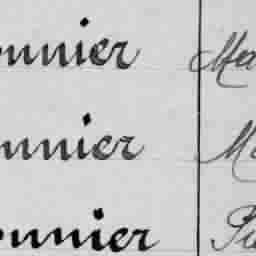 onnier Ma
nnier M
onnier Pi